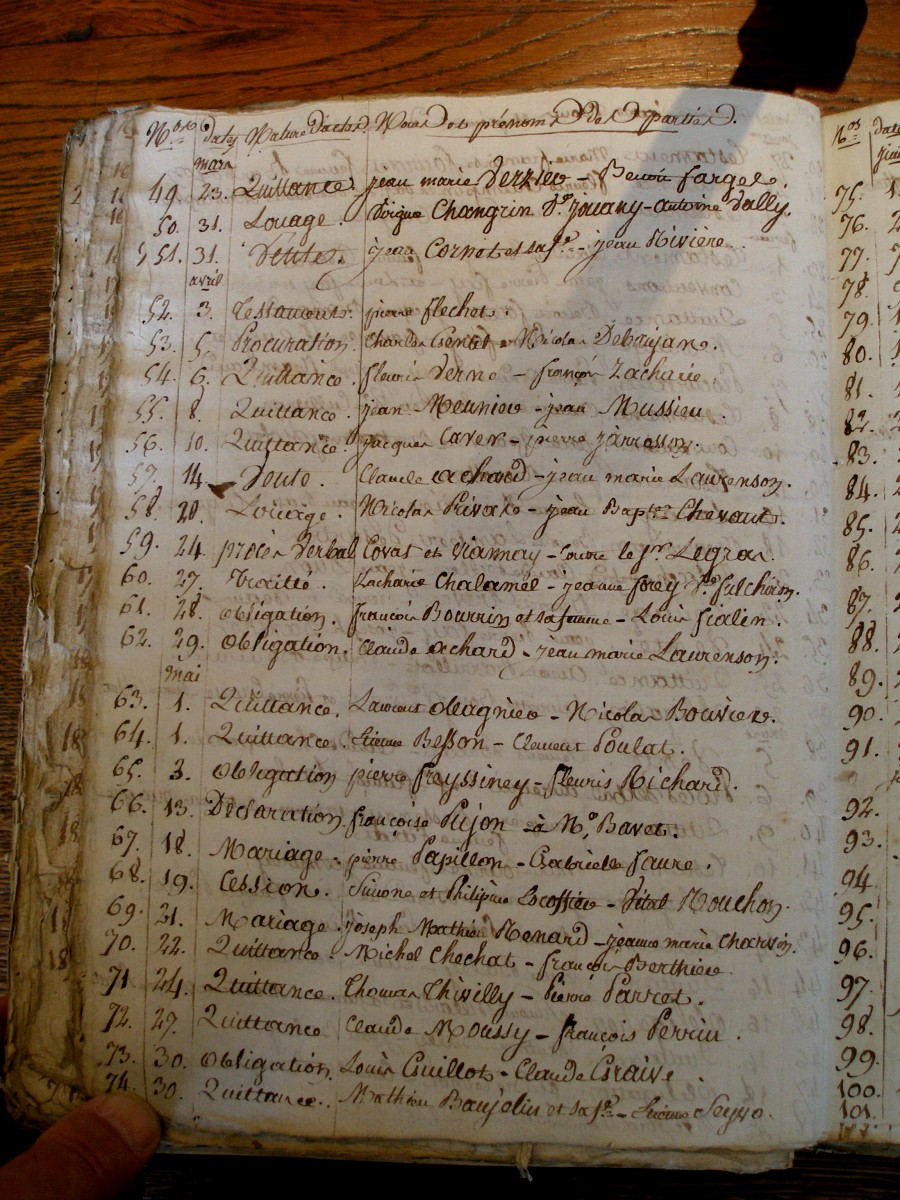 N.os dates Nature d'actes Noms et prénoms des parties.
mars
49. 23. Quittance. jean marie Verrier - Benoit fargel.
50. 31. Louage. Changrin jouany - antoine Dally.
51. 31. Vente. jean Cornot et sa f.e - jean Rivière
avril
52. 3. Testament. pierre flechet.
53. 5. Procuration. Charles Gentet Nicolas Debaujan.
54. 6. Quittance. fleurie Verne - françois Zacharie.
55. 8. Quittance. jean Meunier - jean Mussieu.
56. 10. Quittance. jacques Caver - pierre jamesson.
57. 14. Vente. Claude achard - jean marie Laurenson.
58. 20. Louage. Nicolas Privake - jean Bap.te Chevaut.
59. 24. procès Verbal Covat et - contre le s.r Legros.
60. 27. Traitté. Zacharie Chalamel - jeanne forey V.e fulchiron.
61. 28. obligation. françois Bourrin et sa femme - Louis fialin.
62. 29. obligation. Claude achard - jean marie Laurenson.
mai
63. 1. Quittance. Laurent Magnier - Nicolas Bouvier.
64. 1. Quittance. Etienne Besson - Clement Poulat.
65. 3. obligation pierre freyssiney - fleuris Richard.
66. 13. Déclaration. françoise Pujon à M.e Bavet.
67. 18. Mariage. pierre Papillon - Gabrielle faure.
68. 19. Cession. Simone et Philippe Escoffier - Vital Mouchon.
69. 21. Mariage. joseph Mathieu Renard - jeanne marie Charvin.
70. 22. Quittance. Michel Chechat - françois Berthier
71 24. Quittance. Thomas Thivilly - Pierre Parret.
72. 27. Quittance Claude Moussy - françois Perrin.
73. 30. obligation. Louis Guillot - Claude Graive.
74. 30. Quittance. Mathieu Baujolin et sa f.e - Etienne Seyvo.
N.os
75.
76.
77.
78.
79.
80.
81.
82.
83.
84.
85.
86.
87.
88.
89.
90.
91.
92.
93.
94.
95.
96.
97.
98.
99.
100.
101.